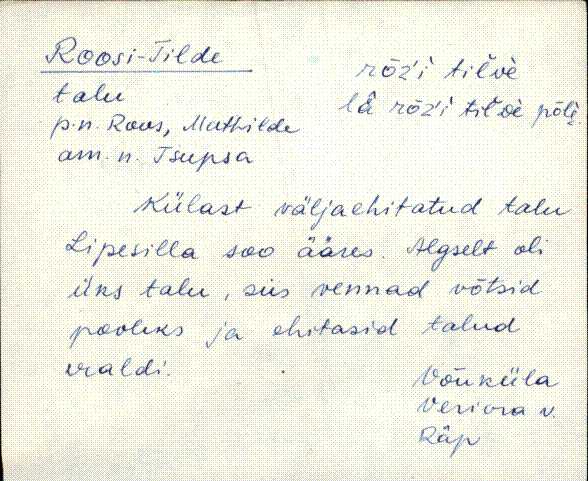 Roosi-Tilde
talu
p.n. Roos, Mathilde
am. n. Tsupsa
rōz'i
lǟ rōz'i
Külast väljaehitatud talu
Lipesilla soo ääres. Algselt oli
üks talu, siis vennad võtsid
pooleks ja ehitasid talud
eraldi.
Võuküla
Veriora v.
Räp